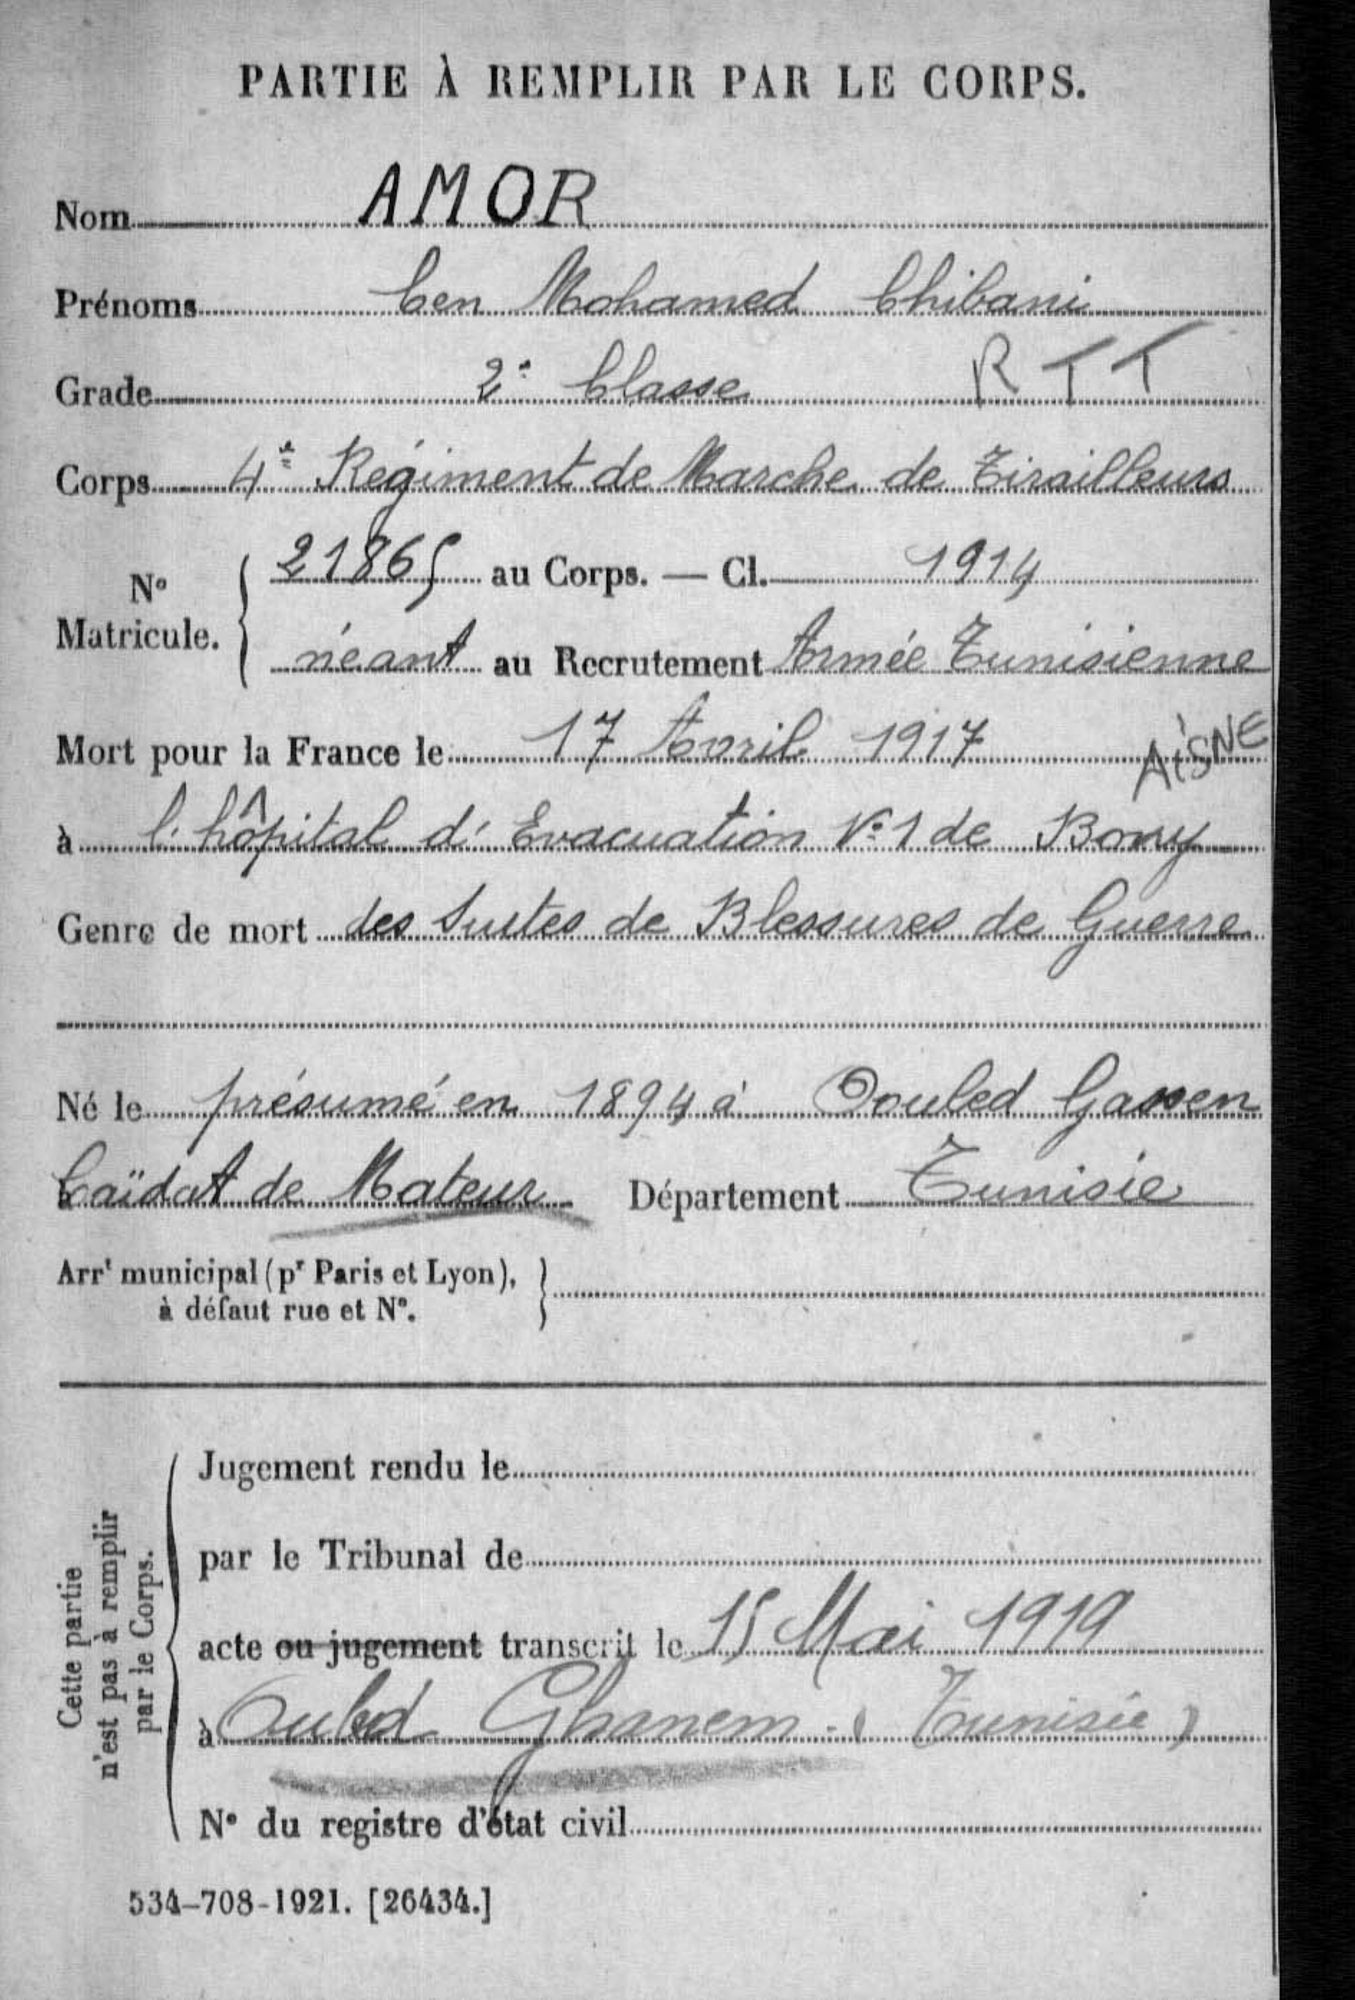 PARTIE À REMPLIR PAR LE CORPS.
Nom AMOR
Prénoms ben Mohamed Chibani
Grade 2e Classe RTT
Corps 4e Régiment de Marche de Tirailleurs
No Matricule. 21865 au Corps. — Cl. 1914
néant au Recrutement Armée Tunisienne
Mort pour la France le 17 Avril 1917 AISNE
à l'hôpital d'Evacuation No 1 de
Genre de mort des Suites de Blessures de Guerre
Né le présumé en 1894 à Oouled Gassen
Caïdat de Mateur Département Tunisie
Arrt municipal (pr Paris et Lyon),
à défaut rue et No.
Cette partie
n'est pas à remplir
par le Corps.
Jugement rendu le
par le Tribunal de
acte ou jugement transcrit le 15 Mai 1919
à Ouled Ghanem (Tunisie)
No du registre d'état civil
534-708-1921. [26434.]